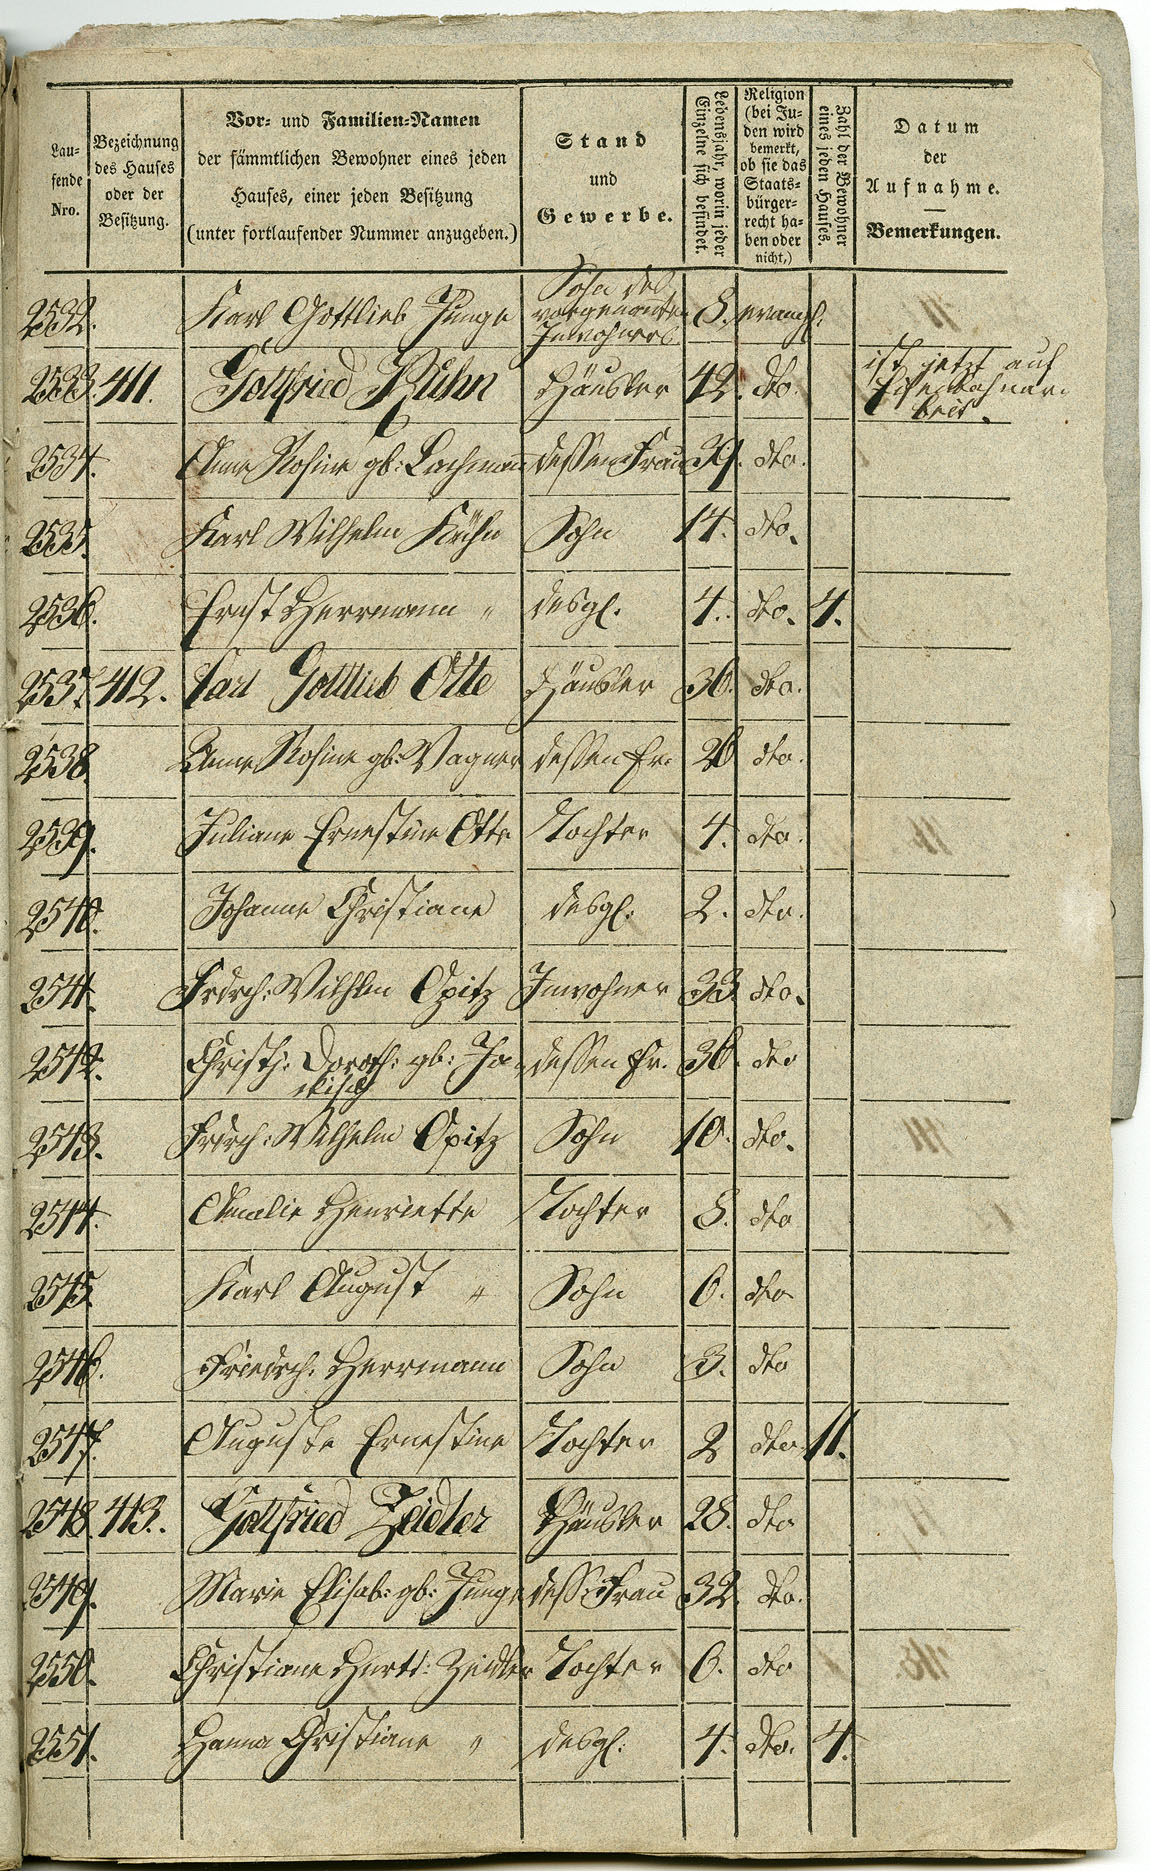 Lau-
fende
Nro.
Bezeichnung
des Hauses
oder der
Besitzung.
Vor- und Familien-Namen
der sämmtlichen Bewohner eines jeden
Hauses, einer jeden Besitzung
(unter fortlaufender Nummer anzugeben.)
Stand
und
Gewerbe.
Lebensjahr, worin jeder
Einzelne sich befindet.
Religion
(bei Ju-
den wird
bemerkt,
ob sie das
Staats-
bürger-
recht ha-
ben oder
nicht,)
Zahl der Bewohner
eines jeden Hauses.
Datum
der
Aufnahme.
Bemerkungen.
2532. Karl Gottlieb Junge Sohn des vorgenannten Inwohners 8. evangl.
2533. 411. Gottfried Kühn Häusler 42. dto. ist jetzt auf Eisenbahnar-
beit.
2534. Anne Rosine gb: Lachmann dessen Frau 39. dto.
2535. Karl Wilhelm Kühn Sohn 14. dto.
2536. Ernst Herrmann " desgl. 4. dto. 4.
2537. 412. Carl Gottlieb Otte Häusler 36. dto.
2538. Anne Rosine gb: Wagner dessen Fr. 26 dto.
2539. Juliane Ernestine Otte Tochter 4. dto.
2540. Johanne Christiane desgl. 2. dto.
2541. Frdrch: Wilhlm Opitz Inwohner 33 dto.
2542. Christ: Doroth: gb: Ja- dessen Fr. 36. dto
kisch
2543. Frdrch: Wilhelm Opitz Sohn 10. dto.
2544. Amalie Henriette Tochter 8. dto
2545. Karl August " Sohn 6. dto
2546. Friedrch: Herrmann Sohn 3. dto
2547. Auguste Ernestine Tochter 2 dto. 11.
2548. 413. Gottfried Zeidler Häusler 28. dto
2549. Marie Elisab: gb: Junge dess: Frau 32. dto.
2550. Christiane Zeidler Tochter 6. dto
2551. Hanna Christiane " desgl: 4. dto. 4.